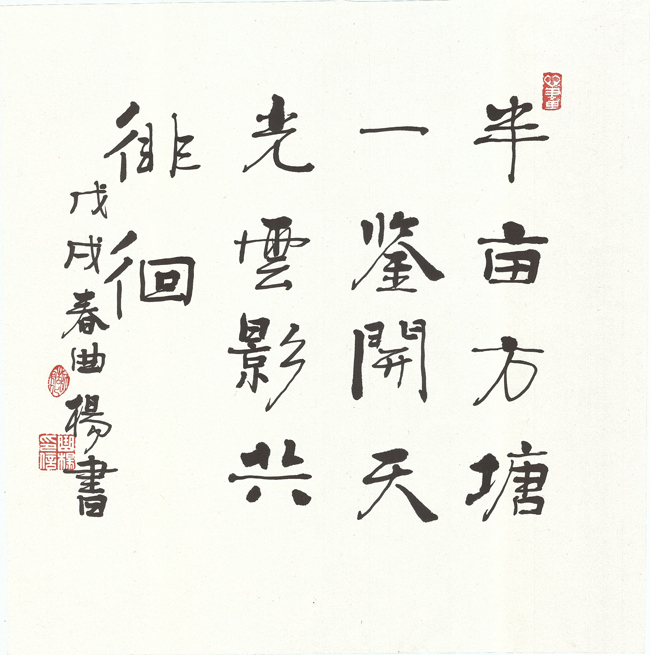 半亩方塘
一鉴開天
光雲影共
徘徊
戊戌春曲楊書